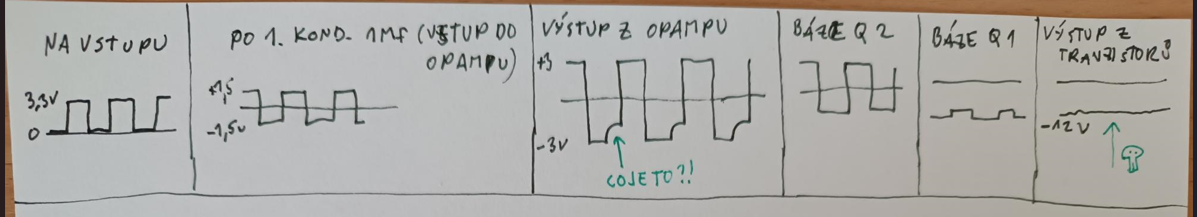 NA VSTUPU
3,3V
0
PO 1. KOND. 1Mf (VSTUP DO
OPAMPU)
+1,5
-1,5V
VÝSTUP Z OPAMPU
+3
-3V
CO JE TO?!
BÁZE Q2
BÁZE Q1
VÝSTUP Z
TRANZISTORŮ
-12V